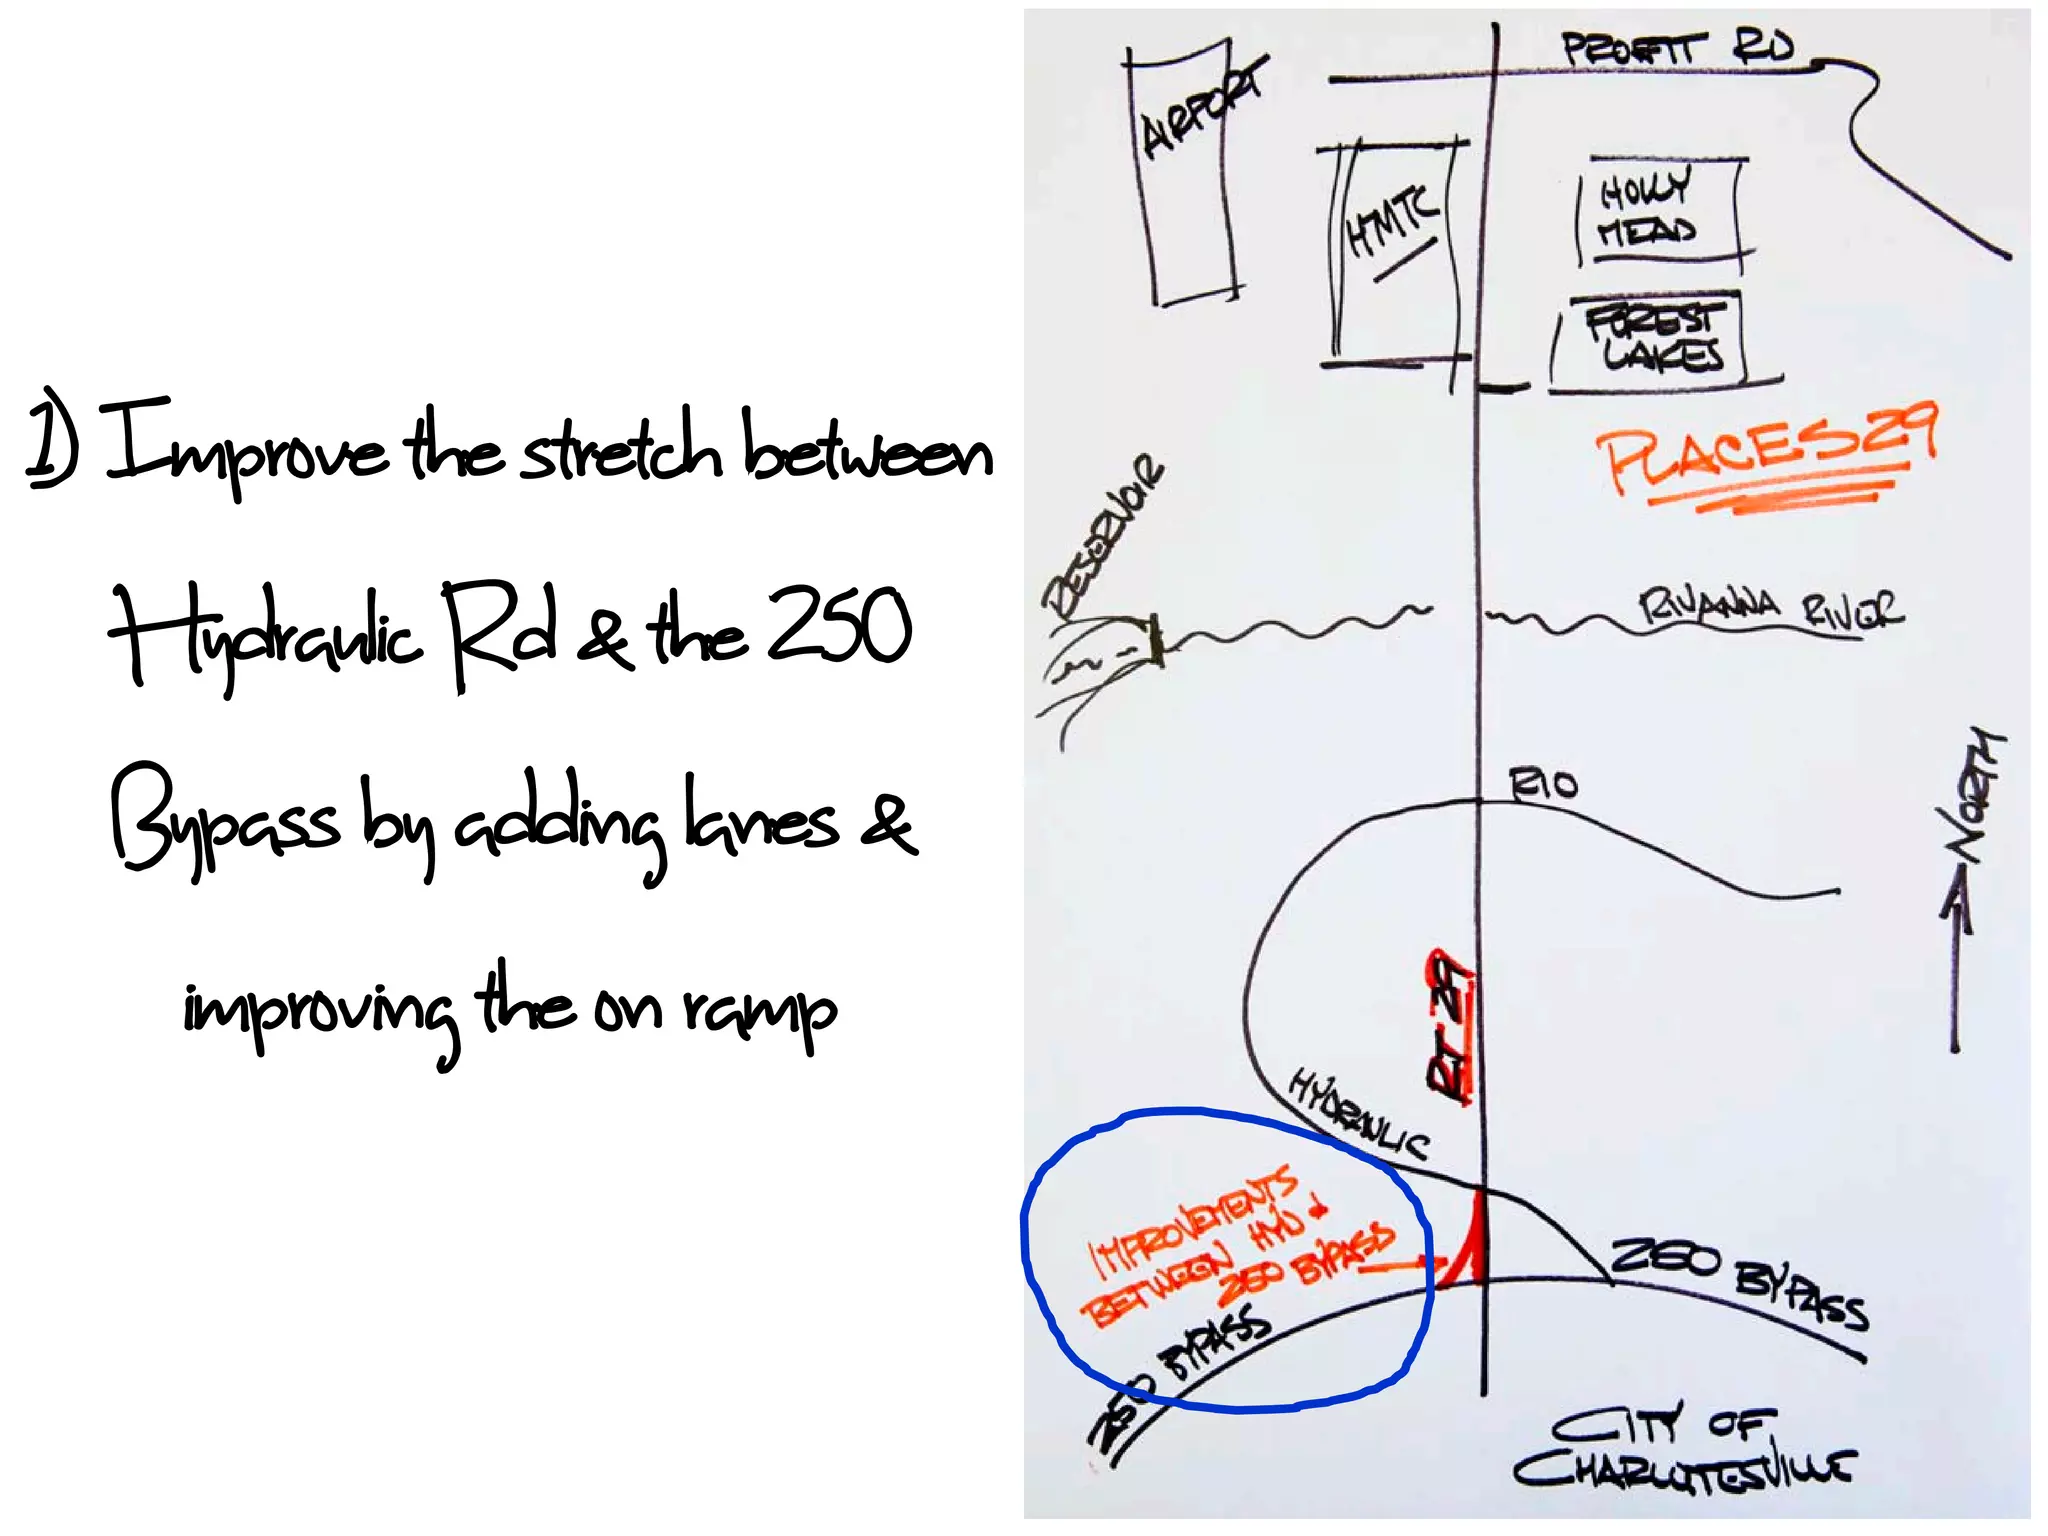 1) Improve the stretch between
Hydraulic Rd & the 250
Bypass by adding lanes &
improving the on ramp
PROFFIT RD
AIRPORT
HMTC
HOLLY
MEAD
FOREST
LAKES
PLACES29
RESERVOIR
RIVANNA RIVER
RIO
NORTH
RT 29
HYDRAULIC
IMPROVEMENTS
BETWEEN HYD &
250 BYPASS
250 BYPASS
250 BYPASS
CITY OF
CHARLOTTESVILLE